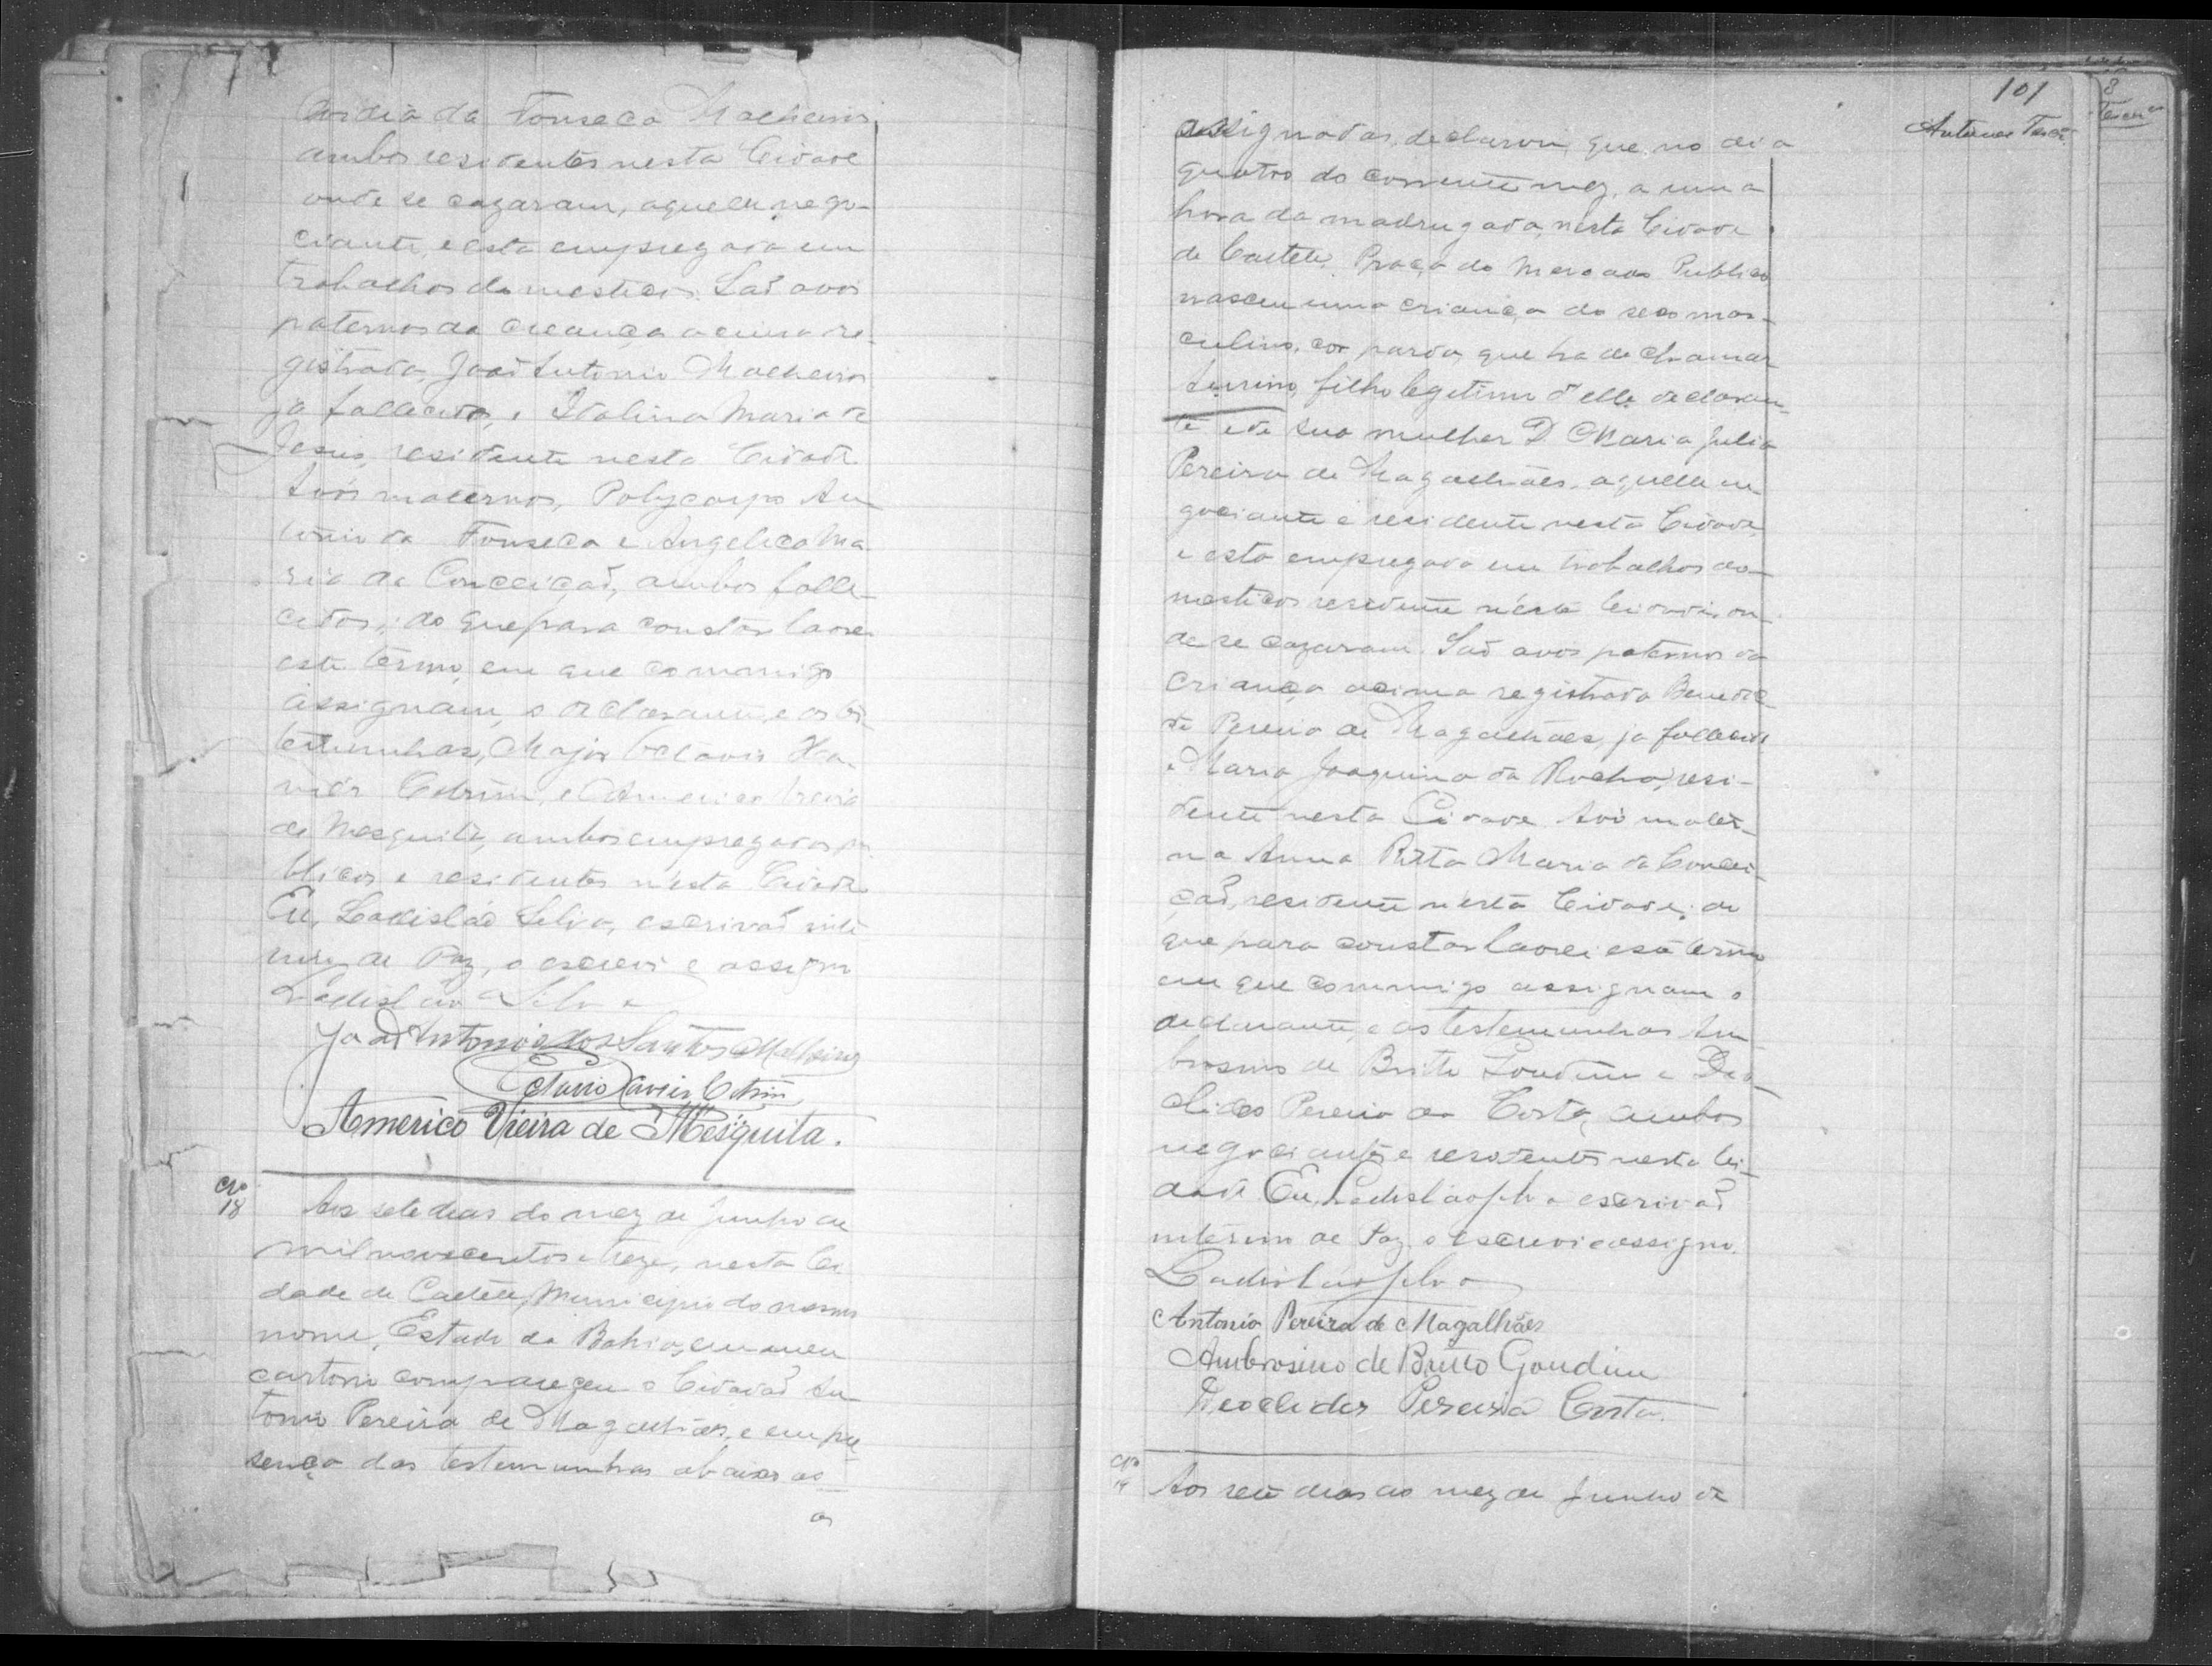 cordia da Fonseca Malheiros
ambos residentes nesta Cidade
onde se cazaram, aquelle nego-
ciante, e esta empregada em
trabalhos domesticos. Saõ avós
paternos da creança acima re-
gistrada, Joaõ Antonio Malheiros
já fallecido, e Idalina Maria de
Jesus, residente nesta Cidade
Avós maternos, Polycarpo An
tonio da Fonseca e Angelica Ma
ria da Conceiçaõ, ambos falle-
cidos; do que para constar lavrei
este termo, em que commigo
assignam, o declarante, e as tes
temunhas, Major Octavio Xa-
vier Cotrim, e Americo Vieira
de Mesquita, ambos empregados pu
blicos e residentes n'esta Cidade
Eu, Ladisláo Silva, escrivaõ inte
rino de Paz, o escrevi e assigno
Ladisláo Silva
Joaõ Antonio dos Santos Malheiros
Octavio Xavier Cotrim
Americo Vieira de Mesquita.
Nº
18
Aos sete dias do mez de Junho de
mil novecentos e treze, nesta Ci
dade de Caeteté, Municipio do mesmo
nome, Estado da Bahia, em meu
cartorio compareceu o Cidadaõ An-
tonio Pereira de Magalhães, e em pre
sença das testemunhas abaixo as
as
101
Antunes
assignadas, declarou, que no dia
quatro do corrente mez, a uma
hora da madrugada, nesta Cidade
de Caeteté, Praça do Mercado Publico
nasceu uma criança do sexo mas-
culino, cor parda, que ha de chamar
filho legitimo d'elle declaran-
te e de sua mulher D. Maria Julia
Pereira de Magalhães, aquelle ne
gociante e residente nesta Cidade,
e esta empregada em trabalhos do-
mesticos residente n'esta Cidade, on-
de se cazaram. Saõ avós paternos da
criança acima registrada Benedic-
to Pereira de Magalhães, já fallecido
e Maria Joaquina da Rocha, resi-
dente nesta Cidade. Avó mater-
na Anna Rita Maria da Concei-
çaõ, residente n'esta Cidade; do
que para constar lavrei este termo
em que commigo assignam o
declarante, e as testemunhas Am
brosino de Britto Gondim e Deo-
clides Pereira da Costa, ambos
negociantes e residentes nesta Ci-
dade. Eu, Ladisláo Silva escrivaõ
interino de Paz o escrevi e assigno.
Ladisláo Silva
Antonio Pereira de Magalhães
Ambrosino de Britto Gondim
Deoclides Pereira Costa.
Nº
19
Aos sete dias do mez de Junho de